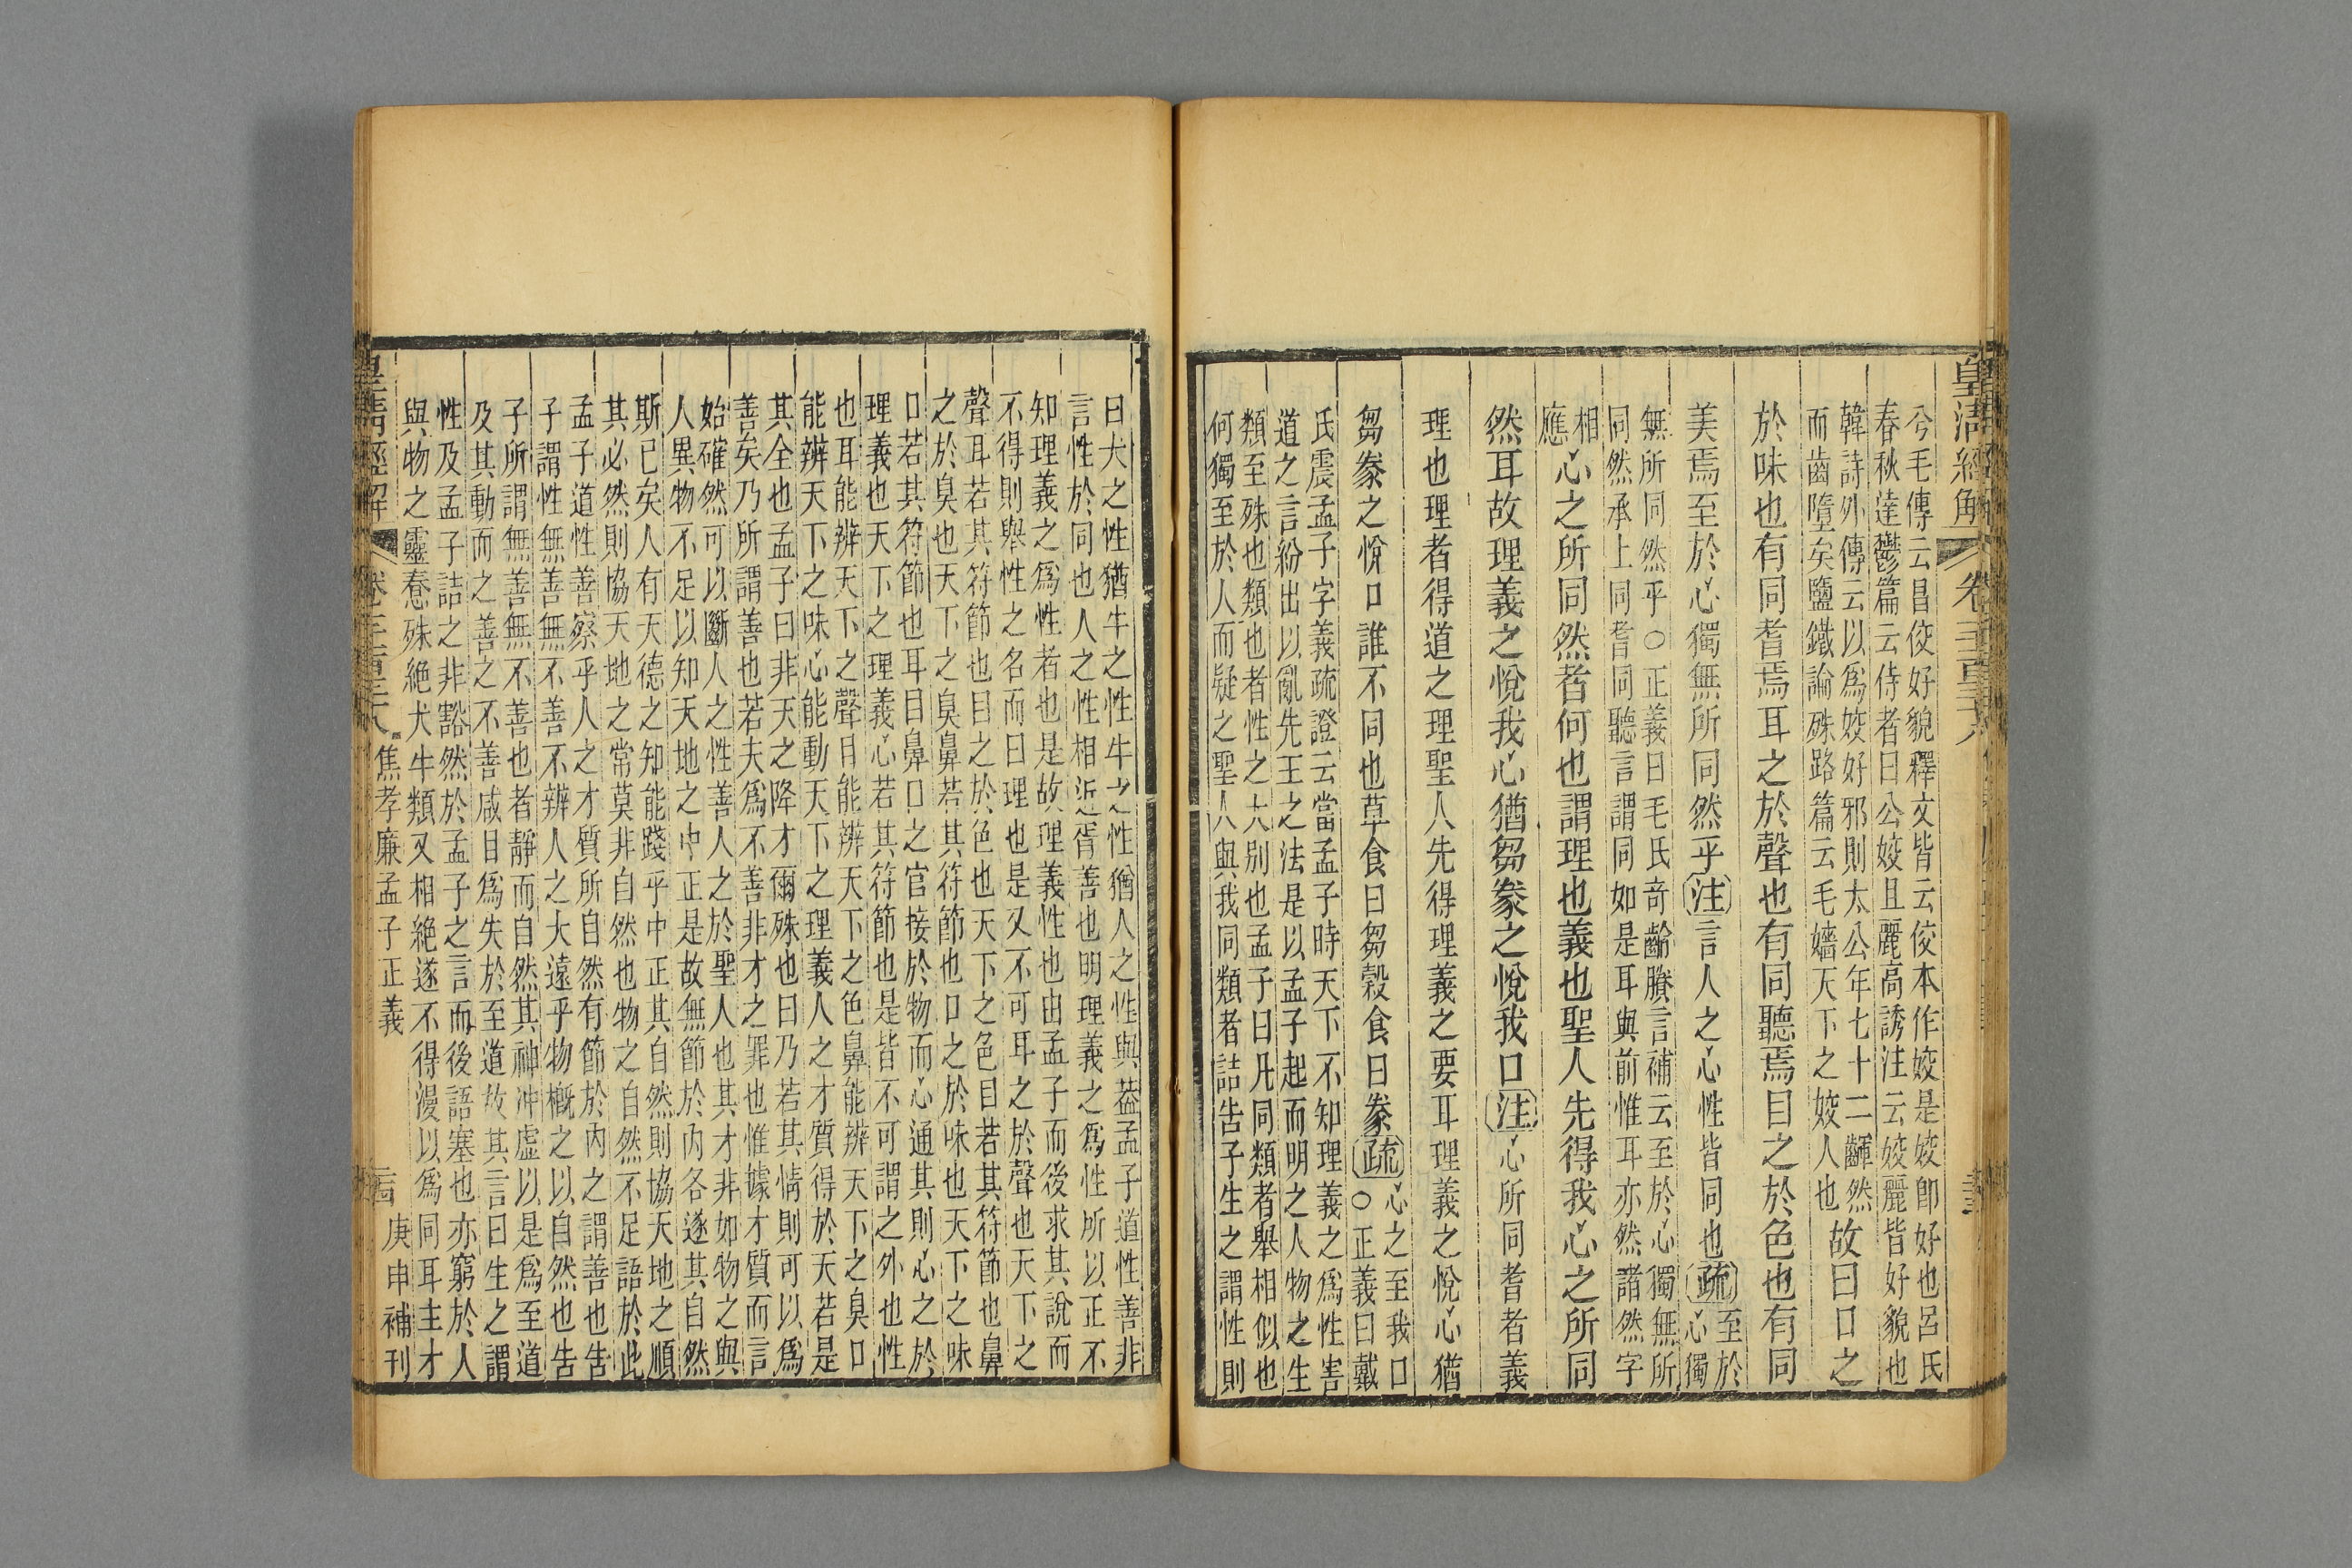 皇清經解
兮毛傳云昌佼好貌釋文皆云佼本作姣是姣卽好也呂氏
春秋達鬱篇云侍者曰公姣且麗高誘注云姣麗皆好貌也
韓詩外傳云以爲姣好邪則太公年七十二齳然
而齒墮矣鹽鐵論殊路篇云毛嬙天下之姣人也
故曰口之
於味也有同耆焉耳之於聲也有同聽焉目之於色也有同
美焉至於心獨無所同然乎注言人之心性皆同也疏至於
心獨
無所同然乎○正義曰毛氏奇齡賸言補云至於心獨無所
同然承上同耆同聽言謂同如是耳與前惟耳亦然諸然字
相
應
心之所同然者何也謂理也義也聖人先得我心之所同
然耳故理義之悅我心猶芻豢之悅我口注心所同耆者義
理也理者得道之理聖人先得理義之要耳理義之悅心猶
芻豢之悅口誰不同也草食曰芻穀食曰豢疏心之至我口
○正義曰戴
氏震孟子字義疏證云當孟子時天下不知理義之爲性害
道之言紛出以亂先王之法是以孟子起而明之人物之生
類至殊也類也者性之大別也孟子曰凡同類者舉相似也
何獨至於人而疑之聖人與我同類者詰告子生之謂性則
曰犬之性猶牛之性牛之性猶人之性與葢孟子道性善非
言性於同也人之性相近胥善也明理義之爲性所以正不
知理義之爲性者也是故理義性也由孟子而後求其說而
不得則舉性之名而曰理也是又不可耳之於聲也天下之
聲耳若其符節也目之於色也天下之色目若其符節也鼻
之於臭也天下之臭鼻若其符節也口之於味也天下之味
口若其符節也耳目鼻口之官接於物而心通其則心之於
理義也天下之理義心若其符節也是皆不可謂之外也性
也耳能辨天下之聲目能辨天下之色鼻能辨天下之臭口
能辨天下之味心能動天下之理義人之才質得於天若是
其全也孟子曰非天之降才爾殊也曰乃若其情則可以爲
善矣乃所謂善也若夫爲不善非才之罪也惟據才質而言
始確然可以斷人之性善人之於聖人也其才非如物之與
人異物不足以知天地之中正是故無節於內各遂其自然
斯已矣人有天德之知能踐乎中正其自然則協天地之順
其必然則協天地之常莫非自然也物之自然不足語於此
孟子道性善察乎人之才質所自然有節於內之謂善也告
子謂性無善無不善不辨人之大遠乎物槪之以自然也告
子所謂無善無不善也者靜而自然其神沖虛以是爲至道
及其動而之善之不善咸目爲失於至道故其言曰生之謂
性及孟子詰之非豁然於孟子之言而後語塞也亦窮於人
與物之靈惷殊絕犬牛類又相絕遂不得漫以爲同耳主才
焦孝廉孟子正義
庚申補刊